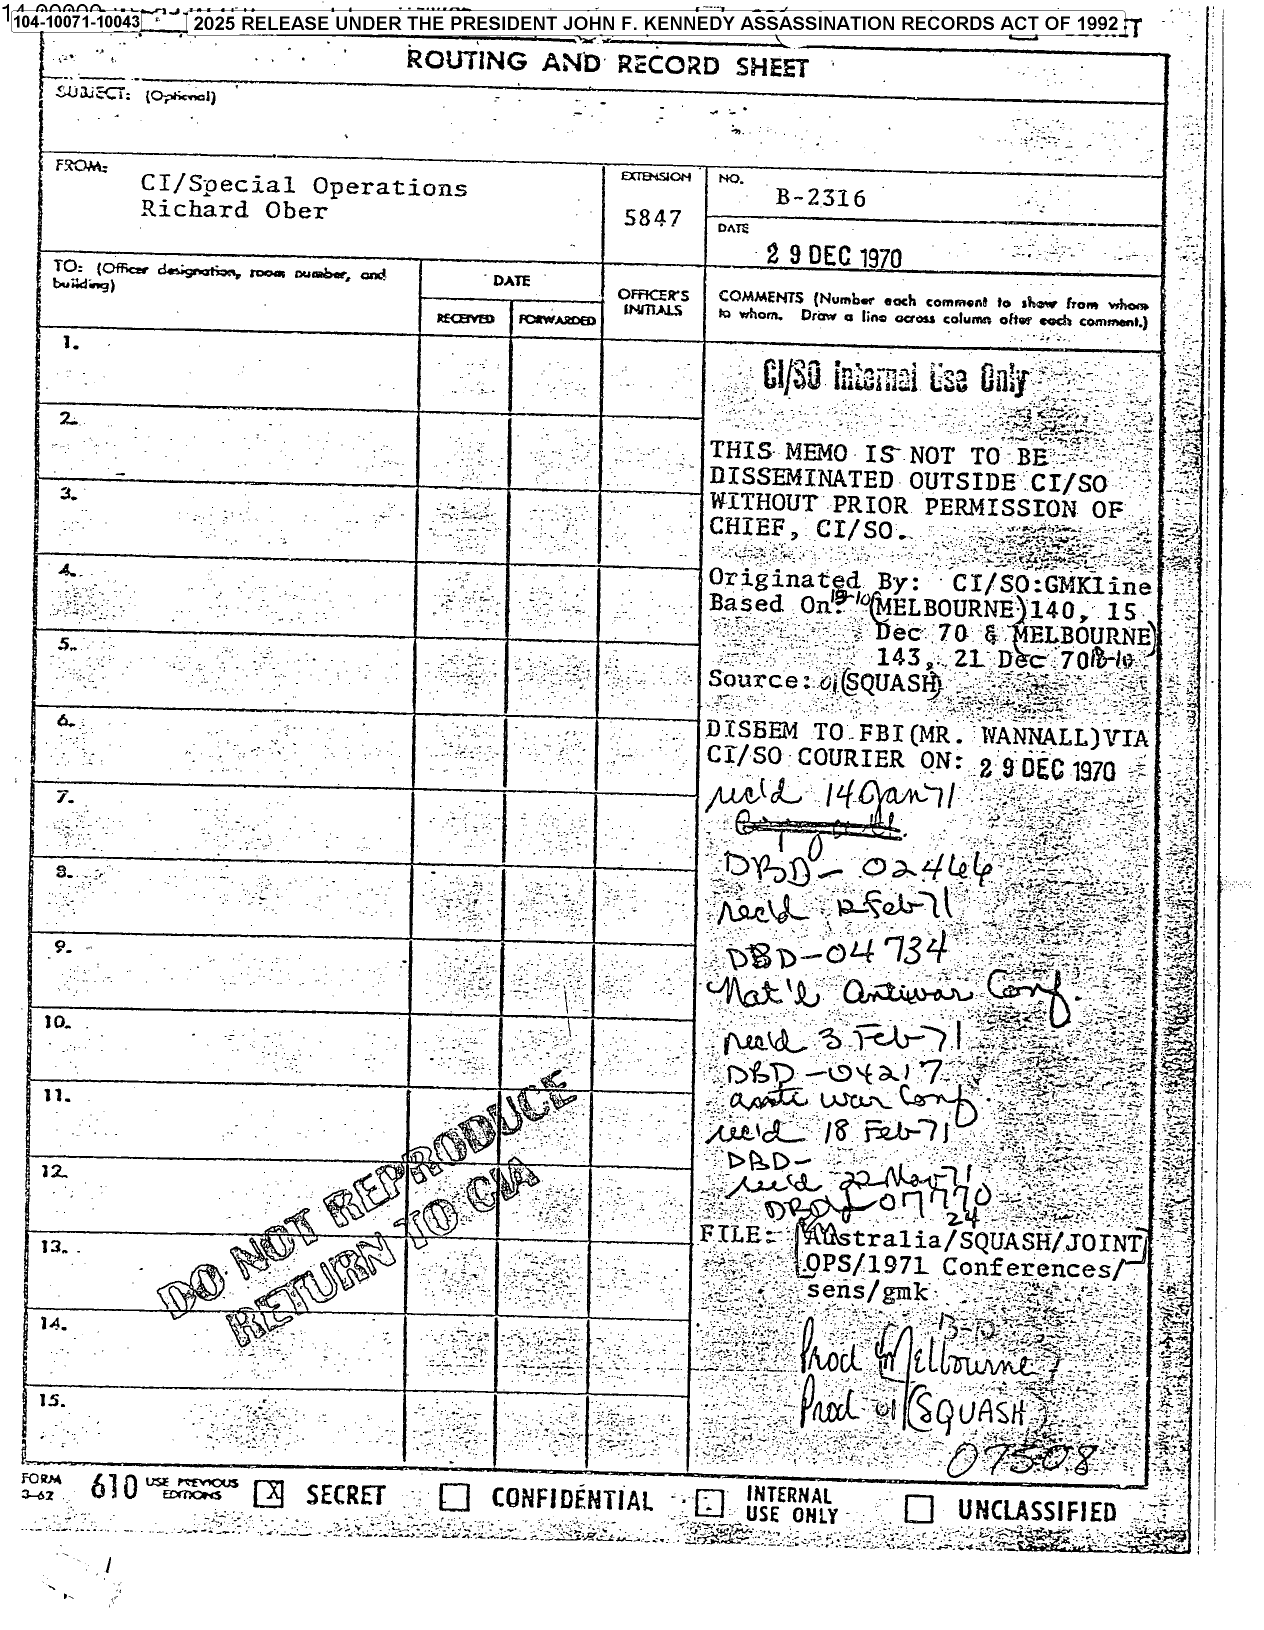 104-10071-10043
2025 RELEASE UNDER THE PRESIDENT JOHN F. KENNEDY ASSASSINATION RECORDS ACT OF 1992
ROUTING AND RECORD SHEET
SUBJECT: (Optional)
FROM:
CI/Special Operations
Richard Ober
EXTENSION
5847
NO.
B-2316
DATE
29 DEC 1970
TO: (Officer designation, room number, and
building)
DATE
RECEIVED
FORWARDED
OFFICER'S
INITIALS
COMMENTS (Number each comment to show from whom
to whom. Draw a line across column after each comment.)
1.
2.
3.
4.
5.
6.
7.
8.
9.
10.
11.
12.
13.
14.
15.
CI/SO Internal Use Only
THIS MEMO IS NOT TO BE
DISSEMINATED OUTSIDE CI/SO
WITHOUT PRIOR PERMISSION OF
CHIEF, CI/SO.
Originated By: CI/SO:GMKline
Based On: 13-10 (MELBOURNE) 140, 15
Dec 70 & MELBOURNE
143, 21 Dec 70 13-10
Source: 01 (SQUASH)
DISSEM TO FBI (MR. WANNALL) VIA
CI/SO COURIER ON: 29 DEC 1970
rec'd 14 Jan 71
DBD- 02466
rec'd 12 Feb 71
DBD-04734
Nat'l Antiwar Conf.
rec'd 3 Feb 71
DBD-04217
anti war Conf.
rec'd 18 Feb 71
DBD-
rec'd 22 Nov 71
DBD- 07770
24
FILE: Australia/SQUASH/JOINT
OPS/1971 Conferences/
sens/gmk
13-10
Prod Melbourne
Prod 01 (SQUASH)
07508
DO NOT REPRODUCE
RETURN TO CIA
FORM
3-62
610
USE PREVIOUS
EDITIONS
X SECRET
CONFIDENTIAL
INTERNAL
USE ONLY
UNCLASSIFIED